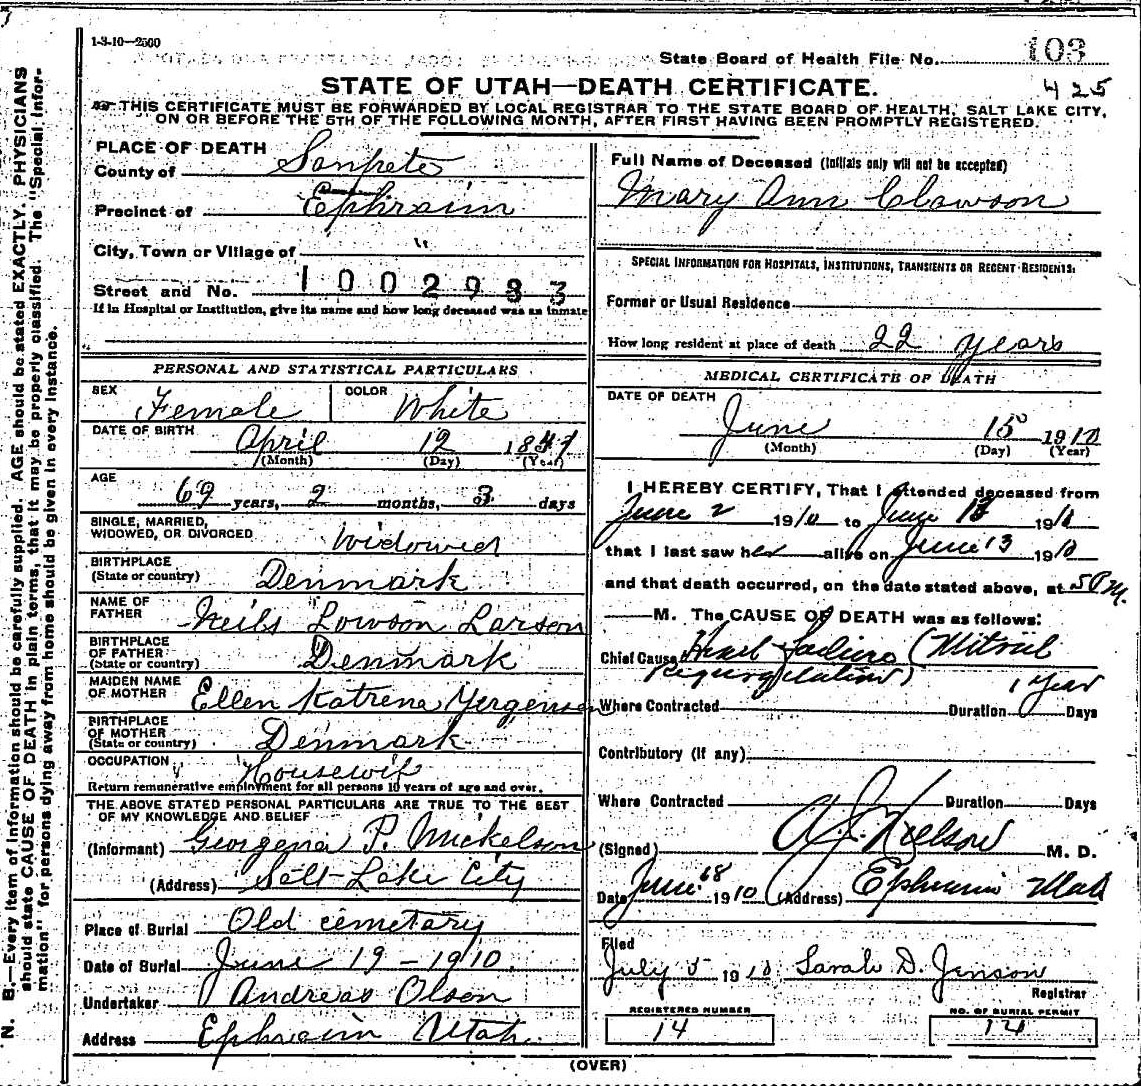 1-3-10—2500
State Board of Health File No. 103
STATE OF UTAH—DEATH CERTIFICATE.
425
THIS CERTIFICATE MUST BE FORWARDED BY LOCAL REGISTRAR TO THE STATE BOARD OF HEALTH, SALT LAKE CITY,
ON OR BEFORE THE 5TH OF THE FOLLOWING MONTH, AFTER FIRST HAVING BEEN PROMPTLY REGISTERED.
N. B.—Every item of information should be carefully supplied. AGE should be stated EXACTLY. PHYSICIANS
should state CAUSE OF DEATH in plain terms, that it may be properly classified. The "Special Infor-
mation" for persons dying away from home should be given in every instance.
PLACE OF DEATH
County of Sanpete
Precinct of Ephraim
City, Town or Village of "
Street and No. 1002983
If in Hospital or Institution, give its name and how long deceased was an inmate
PERSONAL AND STATISTICAL PARTICULARS
SEX Female COLOR White
DATE OF BIRTH April 12 1841
(Month) (Day) (Year)
AGE
69 years, 2 months, 3 days
SINGLE, MARRIED,
WIDOWED, OR DIVORCED Widowed
BIRTHPLACE
(State or country) Denmark
NAME OF
FATHER Neils Lawson Larson
BIRTHPLACE
OF FATHER
(State or country) Denmark
MAIDEN NAME
OF MOTHER Ellen Katrena Yergensen
BIRTHPLACE
OF MOTHER
(State or country) Denmark
OCCUPATION Housewife
Return remunerative employment for all persons 10 years of age and over.
THE ABOVE STATED PERSONAL PARTICULARS ARE TRUE TO THE BEST
OF MY KNOWLEDGE AND BELIEF
(Informant) Georgena P. Mickelson
(Address) Salt Lake City
Place of Burial Old cemetary
Date of Burial June 19-1910.
Undertaker Andreas Olsen
Address Ephraim Utah.
Full Name of Deceased (Initials only will not be accepted)
Mary Ann Clawson
SPECIAL INFORMATION FOR HOSPITALS, INSTITUTIONS, TRANSIENTS OR RECENT RESIDENTS:
Former or Usual Residence
How long resident at place of death 22 years
MEDICAL CERTIFICATE OF DEATH
DATE OF DEATH
June 15 1910
(Month) (Day) (Year)
I HEREBY CERTIFY, That I attended deceased from
June 2 1910 to June 13 1910
that I last saw her alive on June 13 1910
and that death occurred, on the date stated above, at 5 P.M.
M. The CAUSE OF DEATH was as follows:
Chief Cause (Mitral
Regurgitation) 1 Year
Where Contracted Duration Days
Contributory (if any)
Where Contracted Duration Days
(Signed) A. J. Nielson M. D.
Date June 18 1910 (Address) Ephraim Utah
Filed
July 5 1910 Sarah D. Jenson
Registrar
REGISTERED NUMBER
14
NO. OF BURIAL PERMIT
14
(OVER)